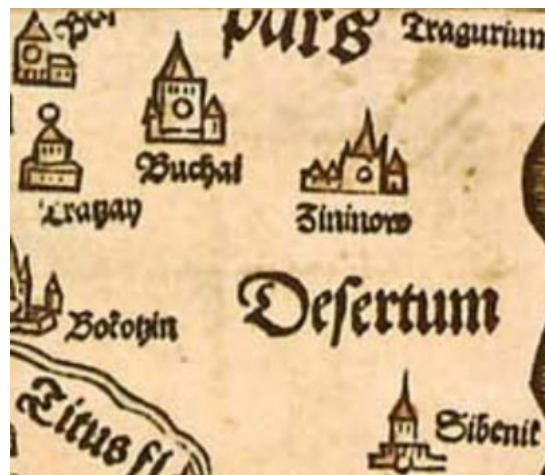 pars
Tragurium
Buchal
Tratzay
Zininow
Bokotzin
Desertum
Titus fl
Sibenik